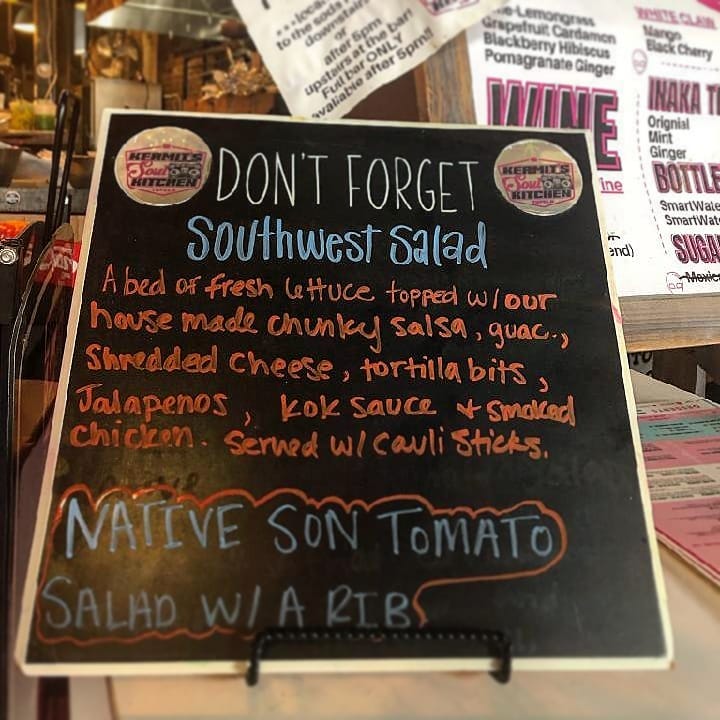 ...local
to the soda
downstairs
or
after 5pm
upstairs at the bar!
Full bar ONLY
available after 5pm!!
-Lemongrass
Grapefruit Cardamon
Blackberry Hibiscus
Pomagranate Ginger
WINE
WHITE CLAW
Mango
Black Cherry
INAKA
Orignial
Mint
Ginger
SmartWate
SmartWat
KERMIT'S
Soul
KITCHEN
DON'T FORGET
KERMIT'S
Soul
KITCHEN
Southwest Salad
A bed of fresh lettuce topped w/ our
house made chunky salsa, guac.,
Shredded cheese, tortilla bits,
Jalapenos, KOK Sauce + smoked
chicken. Served w/ Cauli Sticks.
NATIVE SON TOMATO
SALAD W/ A RIB